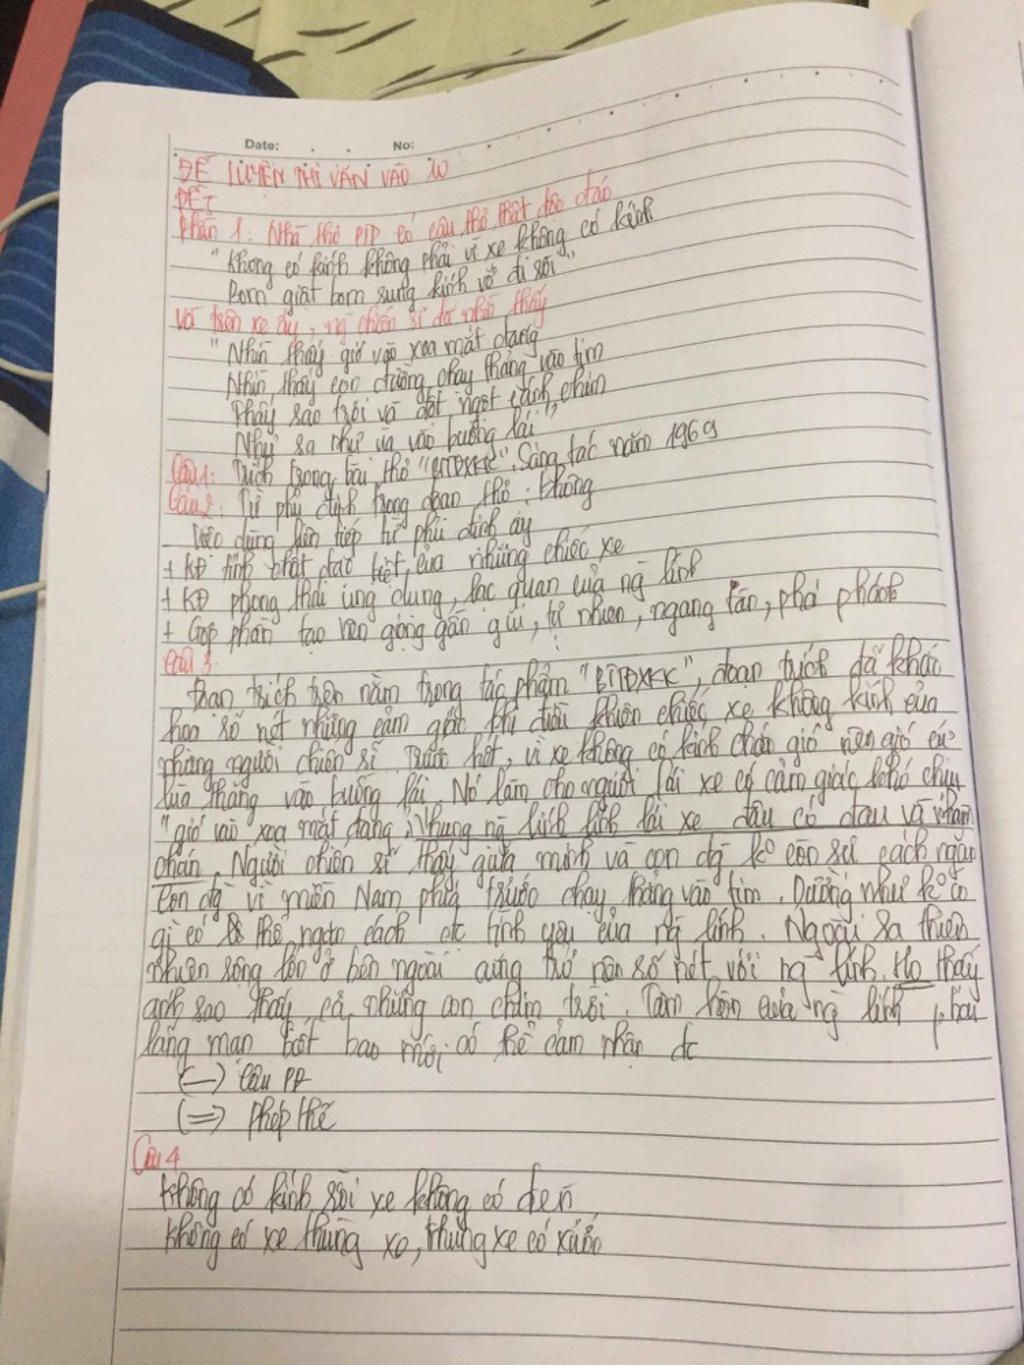 Date: . . No:
ĐỀ LUYỆN THI VĂN VÀO 10
ĐỀ 1
Phần 1: Nhà thơ PTD có câu thơ thật độc đáo
"Không có kính không phải vì xe không có kính
Bom giật bom rung kính vỡ đi rồi"
Và trên xe ấy, ng chiến sĩ đã nhìn thấy
"Nhìn thấy gió vào xoa mắt đắng
Nhìn thấy con đường chạy thẳng vào tim
Thấy sao trời và đột ngột cánh chim
Như sa như ùa vào buồng lái"
Câu 1: Trích trong bài thơ "BTTĐXKK". Sáng tác năm 1969
Câu 2: Từ phủ định trong đoạn thơ: không
Việc dùng liên tiếp từ phủ định ấy
+ KĐ tính chất đặc biệt của những chiếc xe
+ KĐ phong thái ung dung, lạc quan của ng lính
+ Góp phần tạo nên giọng gần gũi, tự nhiên, ngang tàn, phá phách
Câu 3
Đoạn trích trên nằm trong tác phẩm "BTTĐXKK", đoạn trích đã khắc
họa rõ nét những cảm giác khi điều khiển chiếc xe không kính của
những người chiến sĩ. Trước hết, vì xe không có kính chắn gió nên gió cứ
lùa thẳng vào buồng lái. Nó làm cho người lái xe có cảm giác khó chịu
"gió vào xoa mắt đắng". Nhưng ng lính lính lái xe đâu có đau và nhàm
chán. Người chiến sĩ thấy giữa mình và con đg ko còn sự cách ngăn
Con đg vì miền Nam phía trước chạy thẳng vào tim. Dường như ko có
gì có thể ngăn cách đc tình yêu của ng lính. Ngoài ra thiên
nhiên rộng lớn ở bên ngoài cũng trở nên rõ nét với ng lính. Họ thấy
ánh sao thấy cả những con chim trời. Tâm hồn của ng lính phải
lãng mạn biết bao mới có thể cảm nhận đc
(—) Câu PĐ
(=) Phép thế
Câu 4
Không có kính rồi xe không có đèn
Không có xe thùng xe, thùng xe có xước